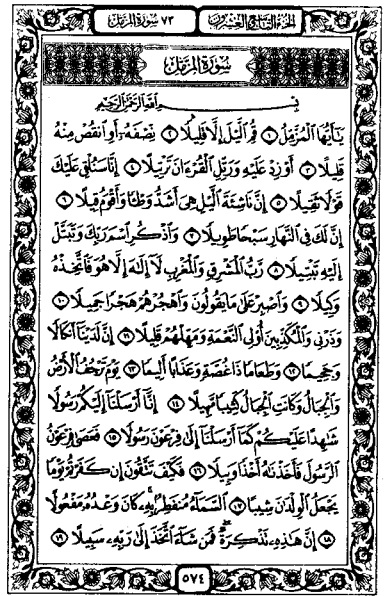 الجزء التاسع والعشرون
٧٣ سورة المزمل
سورة المزمل
بسم الله الرحمن الرحيم
يَٰٓأَيُّهَا ٱلۡمُزَّمِّلُ ١ قُمِ ٱلَّيۡلَ إِلَّا قَلِيلٗا ٢ نِّصۡفَهُۥٓ أَوِ ٱنقُصۡ مِنۡهُ
قَلِيلًا ٣ أَوۡ زِدۡ عَلَيۡهِ وَرَتِّلِ ٱلۡقُرۡءَانَ تَرۡتِيلًا ٤ إِنَّا سَنُلۡقِي عَلَيۡكَ
قَوۡلٗا ثَقِيلًا ٥ إِنَّ نَاشِئَةَ ٱلَّيۡلِ هِيَ أَشَدُّ وَطۡـٔٗا وَأَقۡوَمُ قِيلًا ٦
إِنَّ لَكَ فِي ٱلنَّهَارِ سَبۡحٗا طَوِيلٗا ٧ وَٱذۡكُرِ ٱسۡمَ رَبِّكَ وَتَبَتَّلۡ
إِلَيۡهِ تَبۡتِيلٗا ٨ رَّبُّ ٱلۡمَشۡرِقِ وَٱلۡمَغۡرِبِ لَآ إِلَٰهَ إِلَّا هُوَ فَٱتَّخِذۡهُ
وَكِيلٗا ٩ وَٱصۡبِرۡ عَلَىٰ مَا يَقُولُونَ وَٱهۡجُرۡهُمۡ هَجۡرٗا جَمِيلٗا ١٠
وَذَرۡنِي وَٱلۡمُكَذِّبِينَ أُوْلِي ٱلنَّعۡمَةِ وَمَهِّلۡهُمۡ قَلِيلًا ١١ إِنَّ لَدَيۡنَآ أَنكَالٗا
وَجَحِيمٗا ١٢ وَطَعَامٗا ذَا غُصَّةٖ وَعَذَابًا أَلِيمٗا ١٣ يَوۡمَ تَرۡجُفُ ٱلۡأَرۡضُ
وَٱلۡجِبَالُ وَكَانَتِ ٱلۡجِبَالُ كَثِيبٗا مَّهِيلًا ١٤ إِنَّآ أَرۡسَلۡنَآ إِلَيۡكُمۡ رَسُولٗا
شَٰهِدًا عَلَيۡكُمۡ كَمَآ أَرۡسَلۡنَآ إِلَىٰ فِرۡعَوۡنَ رَسُولٗا ١٥ فَعَصَىٰ فِرۡعَوۡنُ
ٱلرَّسُولَ فَأَخَذۡنَٰهُ أَخۡذٗا وَبِيلٗا ١٦ فَكَيۡفَ تَتَّقُونَ إِن كَفَرۡتُمۡ يَوۡمٗا
يَجۡعَلُ ٱلۡوِلۡدَٰنَ شِيبًا ١٧ ٱلسَّمَآءُ مُنفَطِرُۢ بِهِۦۚ كَانَ وَعۡدُهُۥ مَفۡعُولًا
١٨ إِنَّ هَٰذِهِۦ تَذۡكِرَةٞۖ فَمَن شَآءَ ٱتَّخَذَ إِلَىٰ رَبِّهِۦ سَبِيلًا ١٩
٥٧٤